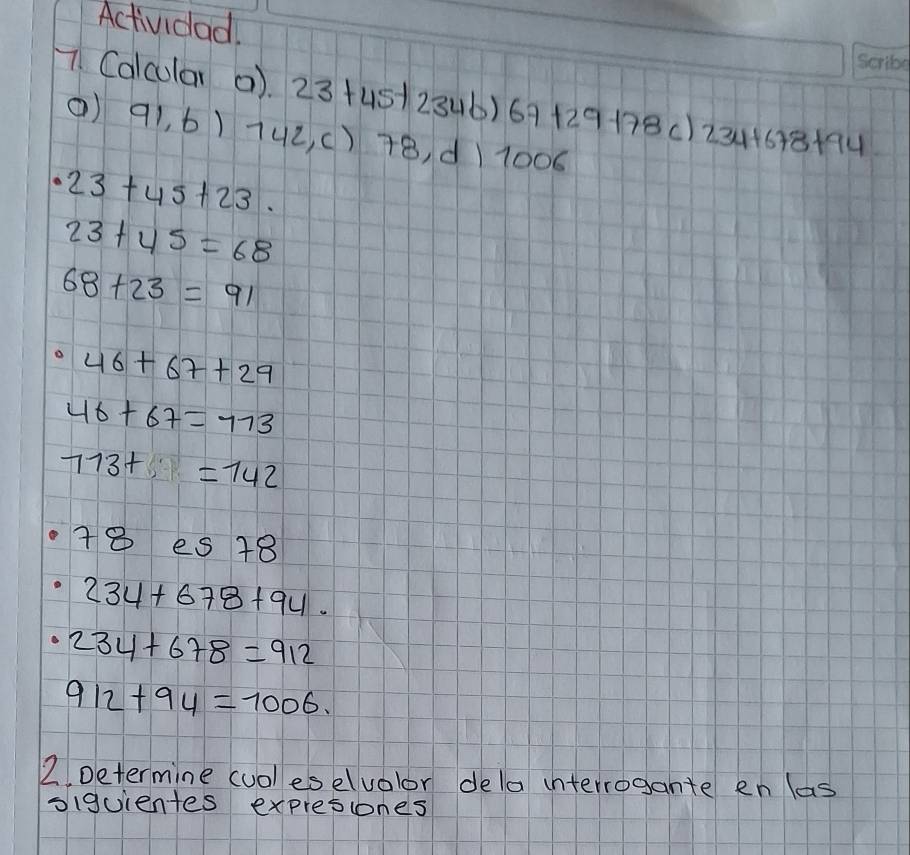 Actividad.
Scribe
1. Calcular a). 23+45+234b) 67+29+78 c) 234+678+94
a) 91, b) 142, c) 78, d) 1006
• 23+45+23.
23+45=68
68+23=91
• 46+67+29
46+67=113
113+ =142
• 78 es 78
• 234+678+94.
• 234+678=912
912+94=1006.
2. Determine cual es el valor de la interrogante en las
siguientes expresiones